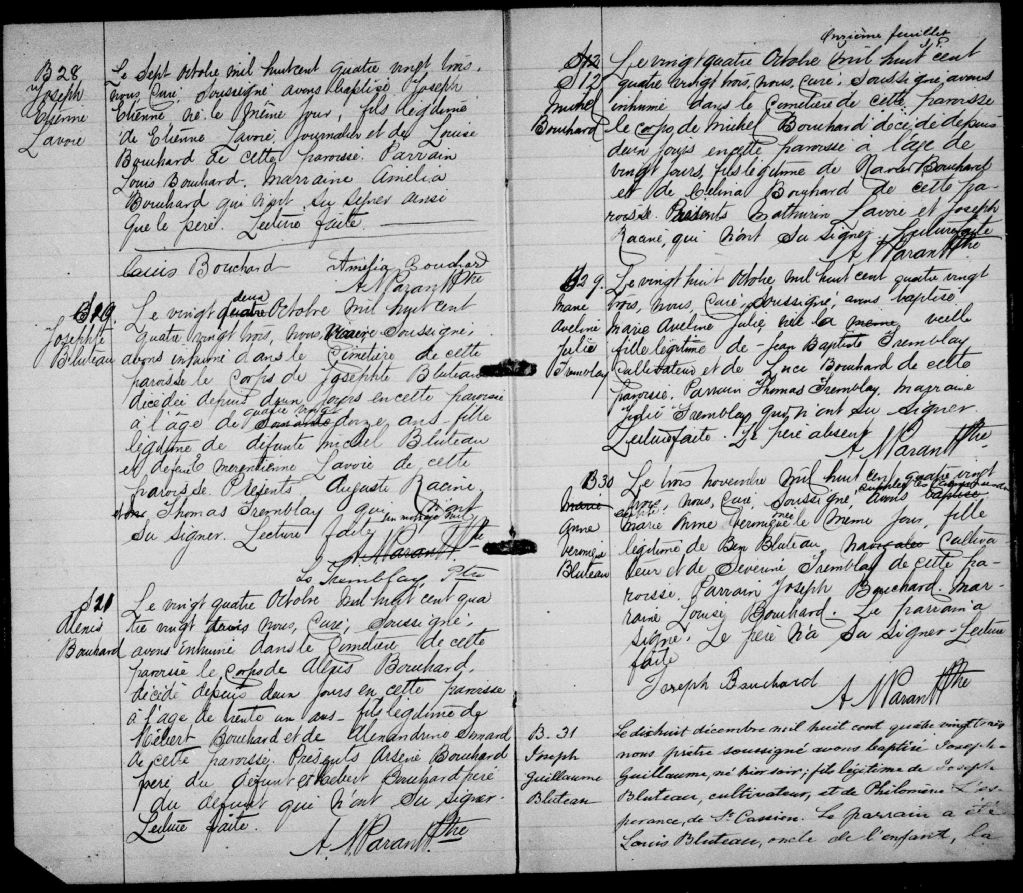 B 28
Joseph
Etienne
Lavoie
Le Sept Octobre mil huit cent quatre vingt trois,
nous, Curé, soussigné avons baptisé Joseph
Etienne né le même jour, fils légitime
de Etienne Lavoie, Journalier et de Louise
Bouchard de cette paroisse. Parrain
Louis Bouchard, marraine Amelia
Bouchard qui n'ont su signer ainsi
que le père. Lecture faite.
Louis Bouchard Amelia Bouchard
A N Parant Ptre
Josephte
Bluteau
Le vingt quatre deux Octobre mil huit cent
quatre vingt trois, nous, soussigné,
avons inhumé dans le Cimetière de cette
paroisse le Corps de Josephte Bluteau
décédée depuis deux jours en cette paroisse
à l'âge de quatre vingt douze ans fille
légitime de défunte michel Bluteau
et defunte Lavoie de cette
paroisse. Présents Auguste Racine
Thomas Tremblay qui n'ont
su signer. Lecture faite un mot rayé nul
A N Parant Ptre
Ls Tremblay Ptre
S 21
Alexis
Bouchard
Le vingt quatre Octobre mil huit cent qua
tre vingt nous, Curé, soussigné,
avons inhumé dans le Cimetière de cette
paroisse le corps de Alexis Bouchard,
décédé depuis deux jours en cette paroisse
à l'age de trente un ans fils legitime de
Bouchard et de Alexandrine Simard
de cette paroisse. Présents Arsène Bouchard
père du défunt et Bouchard père
du défunt qui n'ont su signer.
Lecture faite.
A. N Parant Ptre
Onzième feuillet
S12
S 12
michel
Bouchard
Le vingt quatre Octobre mil huit cent
quatre vingt trois, nous, Curé, soussigné, avons
inhumé dans le Cimetière de cette paroisse
le corps de michel Bouchard décédé depuis
deux jours en cette paroisse à l'âge de
vingt jours, fils legitime de Bouchard
et de Celina Bouchard de cette pa-
roisse. Présents Mathurin Lavoie et Joseph
Racine, qui n'ont su signer. Lecture faite
A N Parant Ptre
B 29.
Marie
Aveline
Julie
Tremblay
Le vingt huit Octobre, mil huit cent quatre vingt
trois, nous, Curé, soussigné, avons baptisé
marie Aveline Julie, née la meme veille
fille légitime de Jean Baptiste Tremblay
Cultivateur et de Luce Bouchard de cette
paroisse, Parrain Thomas Tremblay, marraine
Julie Tremblay qui n'ont su signer.
Lecture faite. Le père absent
A N Parant Ptre
B 30
Marie
Anne
Bluteau
Le trois novembre mil huit cent quatre vingt
trois, nous, Curé, soussigné, avons baptisé
marie Anne née le même jour, fille
légitime de Ben Bluteau Cultiva
teur et de Severine Tremblay de cette pa-
roisse. Parrain Joseph Bouchard. mar-
raine Louise Bouchard. Le parrain a
signé. Le père n'a su signer. Lecture
faite
Joseph Bouchard
A N Parant Ptre
B. 31
Joseph
Guillaume
Bluteau
Le dixhuit décembre mil huit cent quatre vingt trois
nous prêtre soussigné avons baptisé Joseph-
Guillaume, né hier soir; fils légitime de Joseph
Bluteau, cultivateur, et de Philomène Les-
pérance, de St. Cassien. Le parrain a été
Louis Bluteau, oncle de l'enfant, la